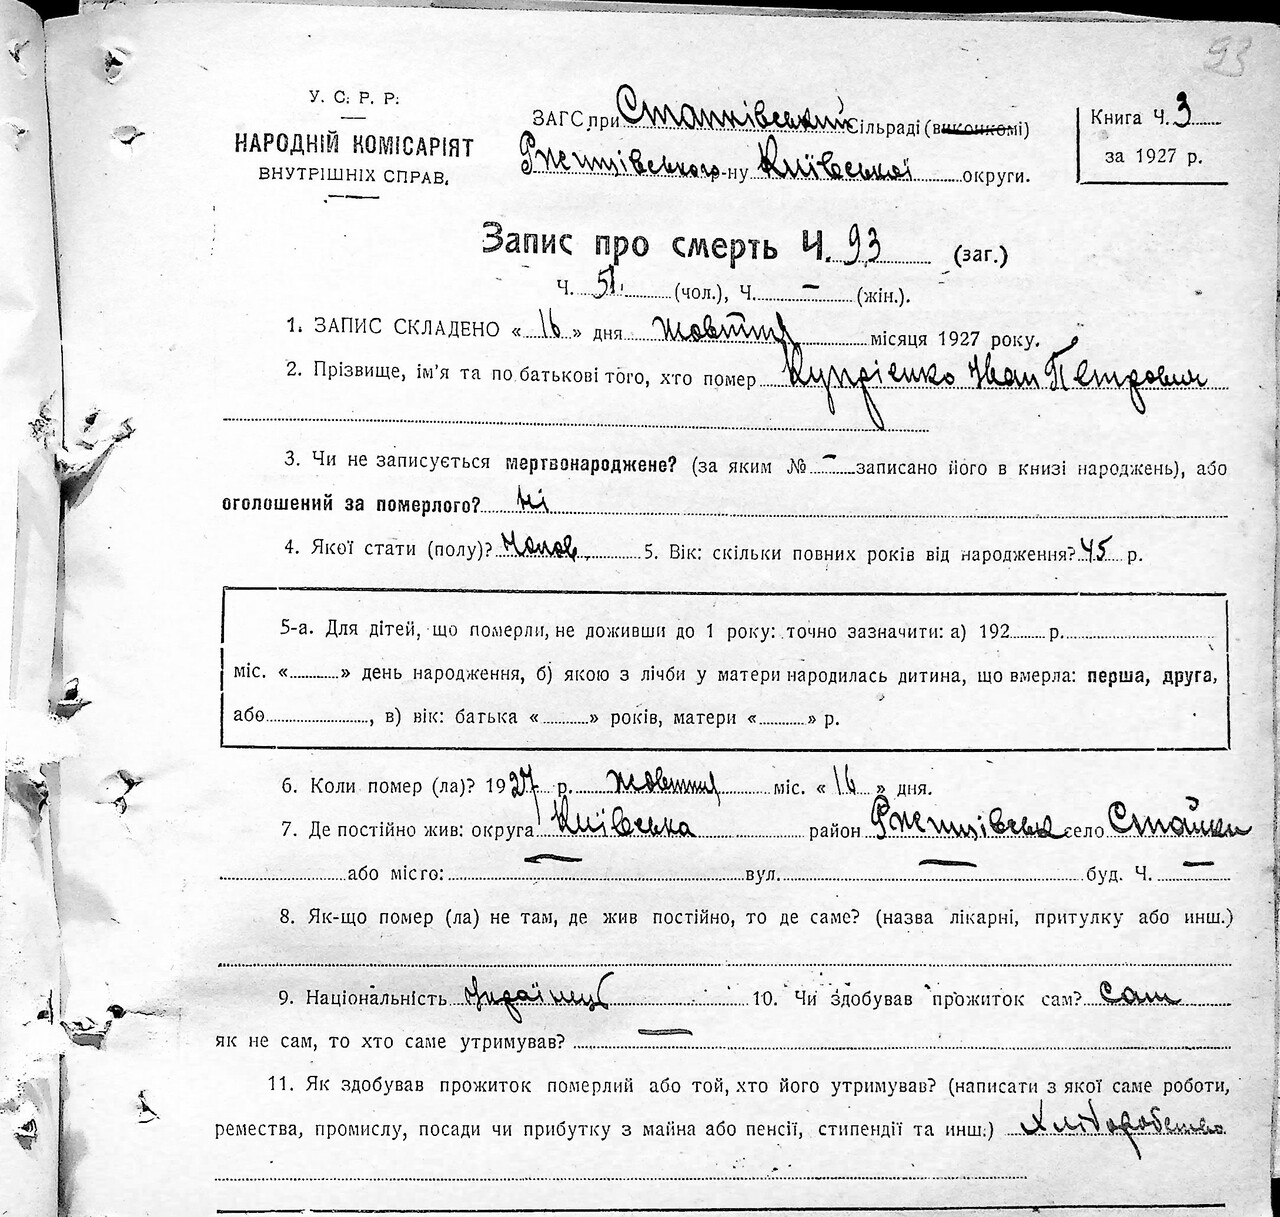 93
У. С. Р. Р.
НАРОДНІЙ КОМІСАРІЯТ
ВНУТРІШНІХ СПРАВ.
ЗАГС при Стайківський сільраді (виконкомі)
Ржищівського р-ну Київської округи.
Книга Ч. 3
за 1927 р.
Запис про смерть Ч. 93 (заг.)
Ч. 51. (чол.), Ч. — (жін.).
1. ЗАПИС СКЛАДЕНО « 16 » дня жовтня місяця 1927 року.
2. Прізвище, ім'я та по батькові того, хто помер Купрієнко Іван Петрович
3. Чи не записується мертвонароджене? (за яким № — записано його в книзі народжень), або
оголошений за померлого? Ні
4. Якої стати (полу)? Чолов. 5. Вік: скільки повних років від народження? 45 р.
5-а. Для дітей, що померли, не доживши до 1 року: точно зазначити: а) 192 р.
міс. « » день народження, б) якою з лічби у матери народилась дитина, що вмерла: перша, друга,
або , в) вік: батька « » років, матери « » р.
6. Коли помер (ла)? 1927 р. жовтня міс. « 16 » дня.
7. Де постійно жив: округа Київська район Ржищівськ село Стайки
або місто: — вул. — буд. Ч. —
8. Як-що помер (ла) не там, де жив постійно, то де саме? (назва лікарні, притулку або инш.)
9. Національність Українець 10. Чи здобував прожиток сам? сам
як не сам, то хто саме утримував? —
11. Як здобував прожиток померлий або той, хто його утримував? (написати з якої саме роботи,
ремества, промислу, посади чи прибутку з майна або пенсії, стипендії та инш.) Хліборобство